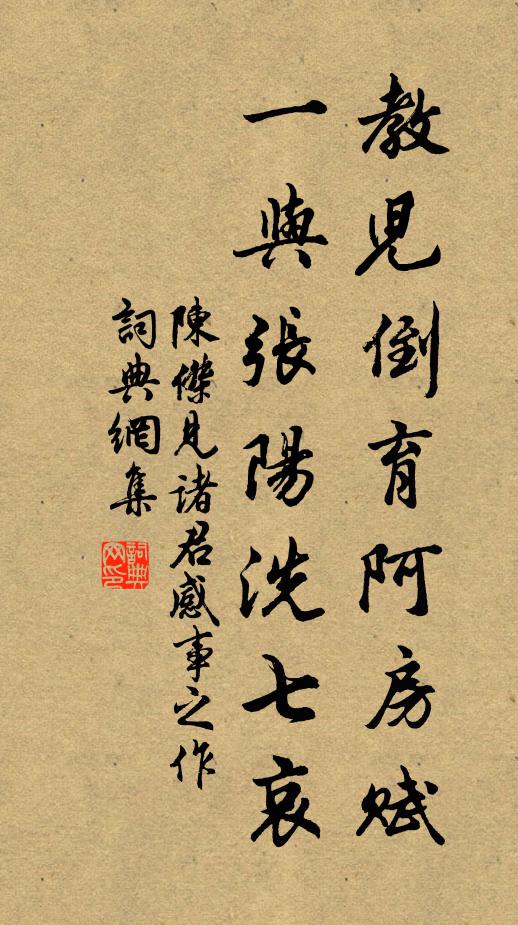 教児倒育阿房賦
一與張陽洗七哀
陳傑見諸君感事之作
詞典網集
詞典網印